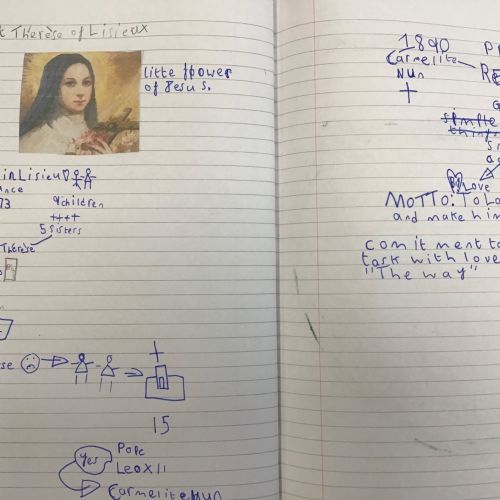 t Therèse of Lisieux
little flower
of Jesus.
in Lisieux
ance
73
9 children
++++
5 sisters
Therèse
se
15
yes
Pope
Leo XII
Carmelite nun
1890
Carmelite
Nun
simple
things
Love
MOTTO: To Lo
and make him
comitment to
task with love
"The way"